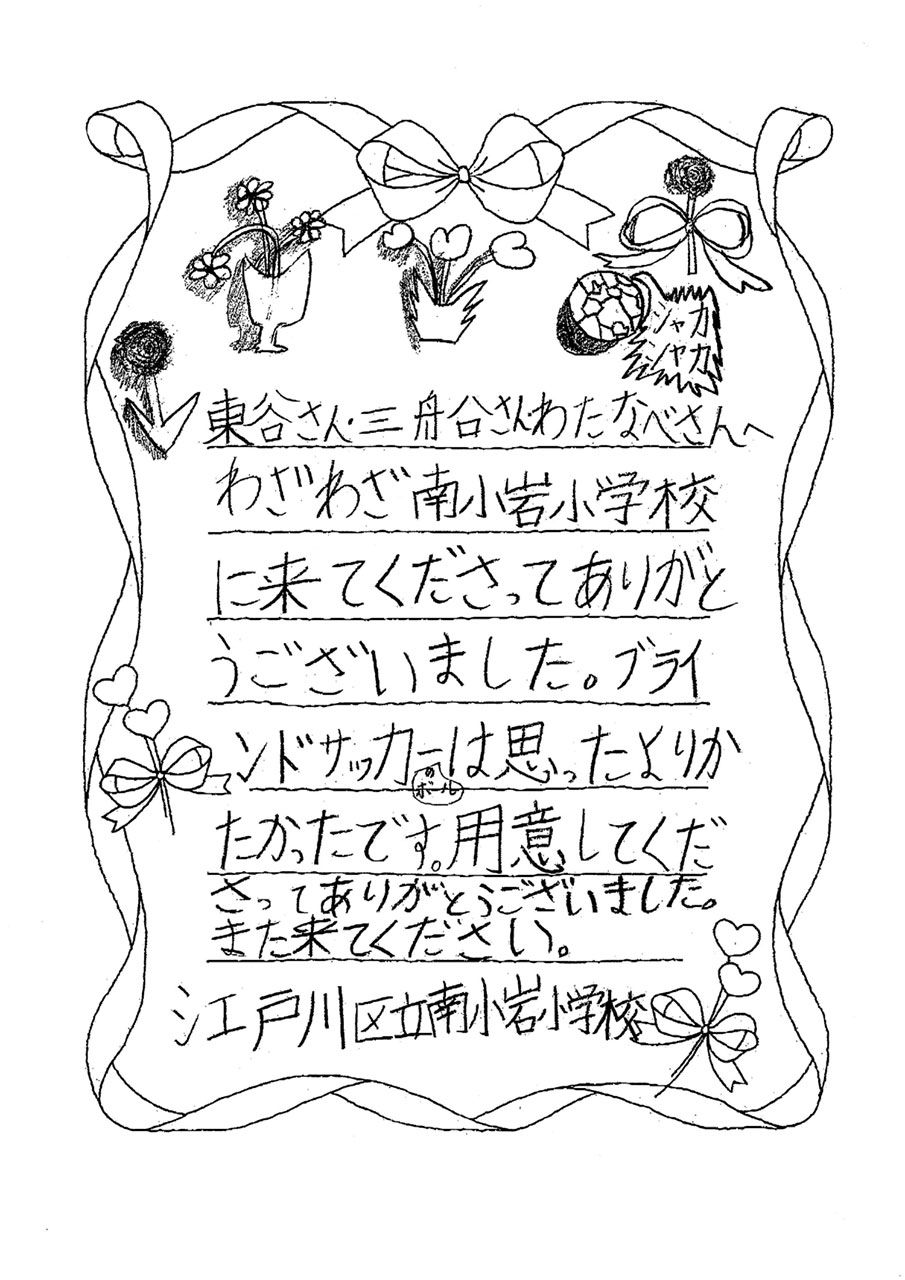 シャカ
シャカ
東谷さん・三舟谷さんわたなべさんへ
わざわざ南小岩小学校
に来てくださってありがと
うございました。ブライ
ンドサッカーは思ったよりか
のボール
たかったです。用意してくだ
さってありがとうございました。
また来てください。
江戸川区立南小岩小学校